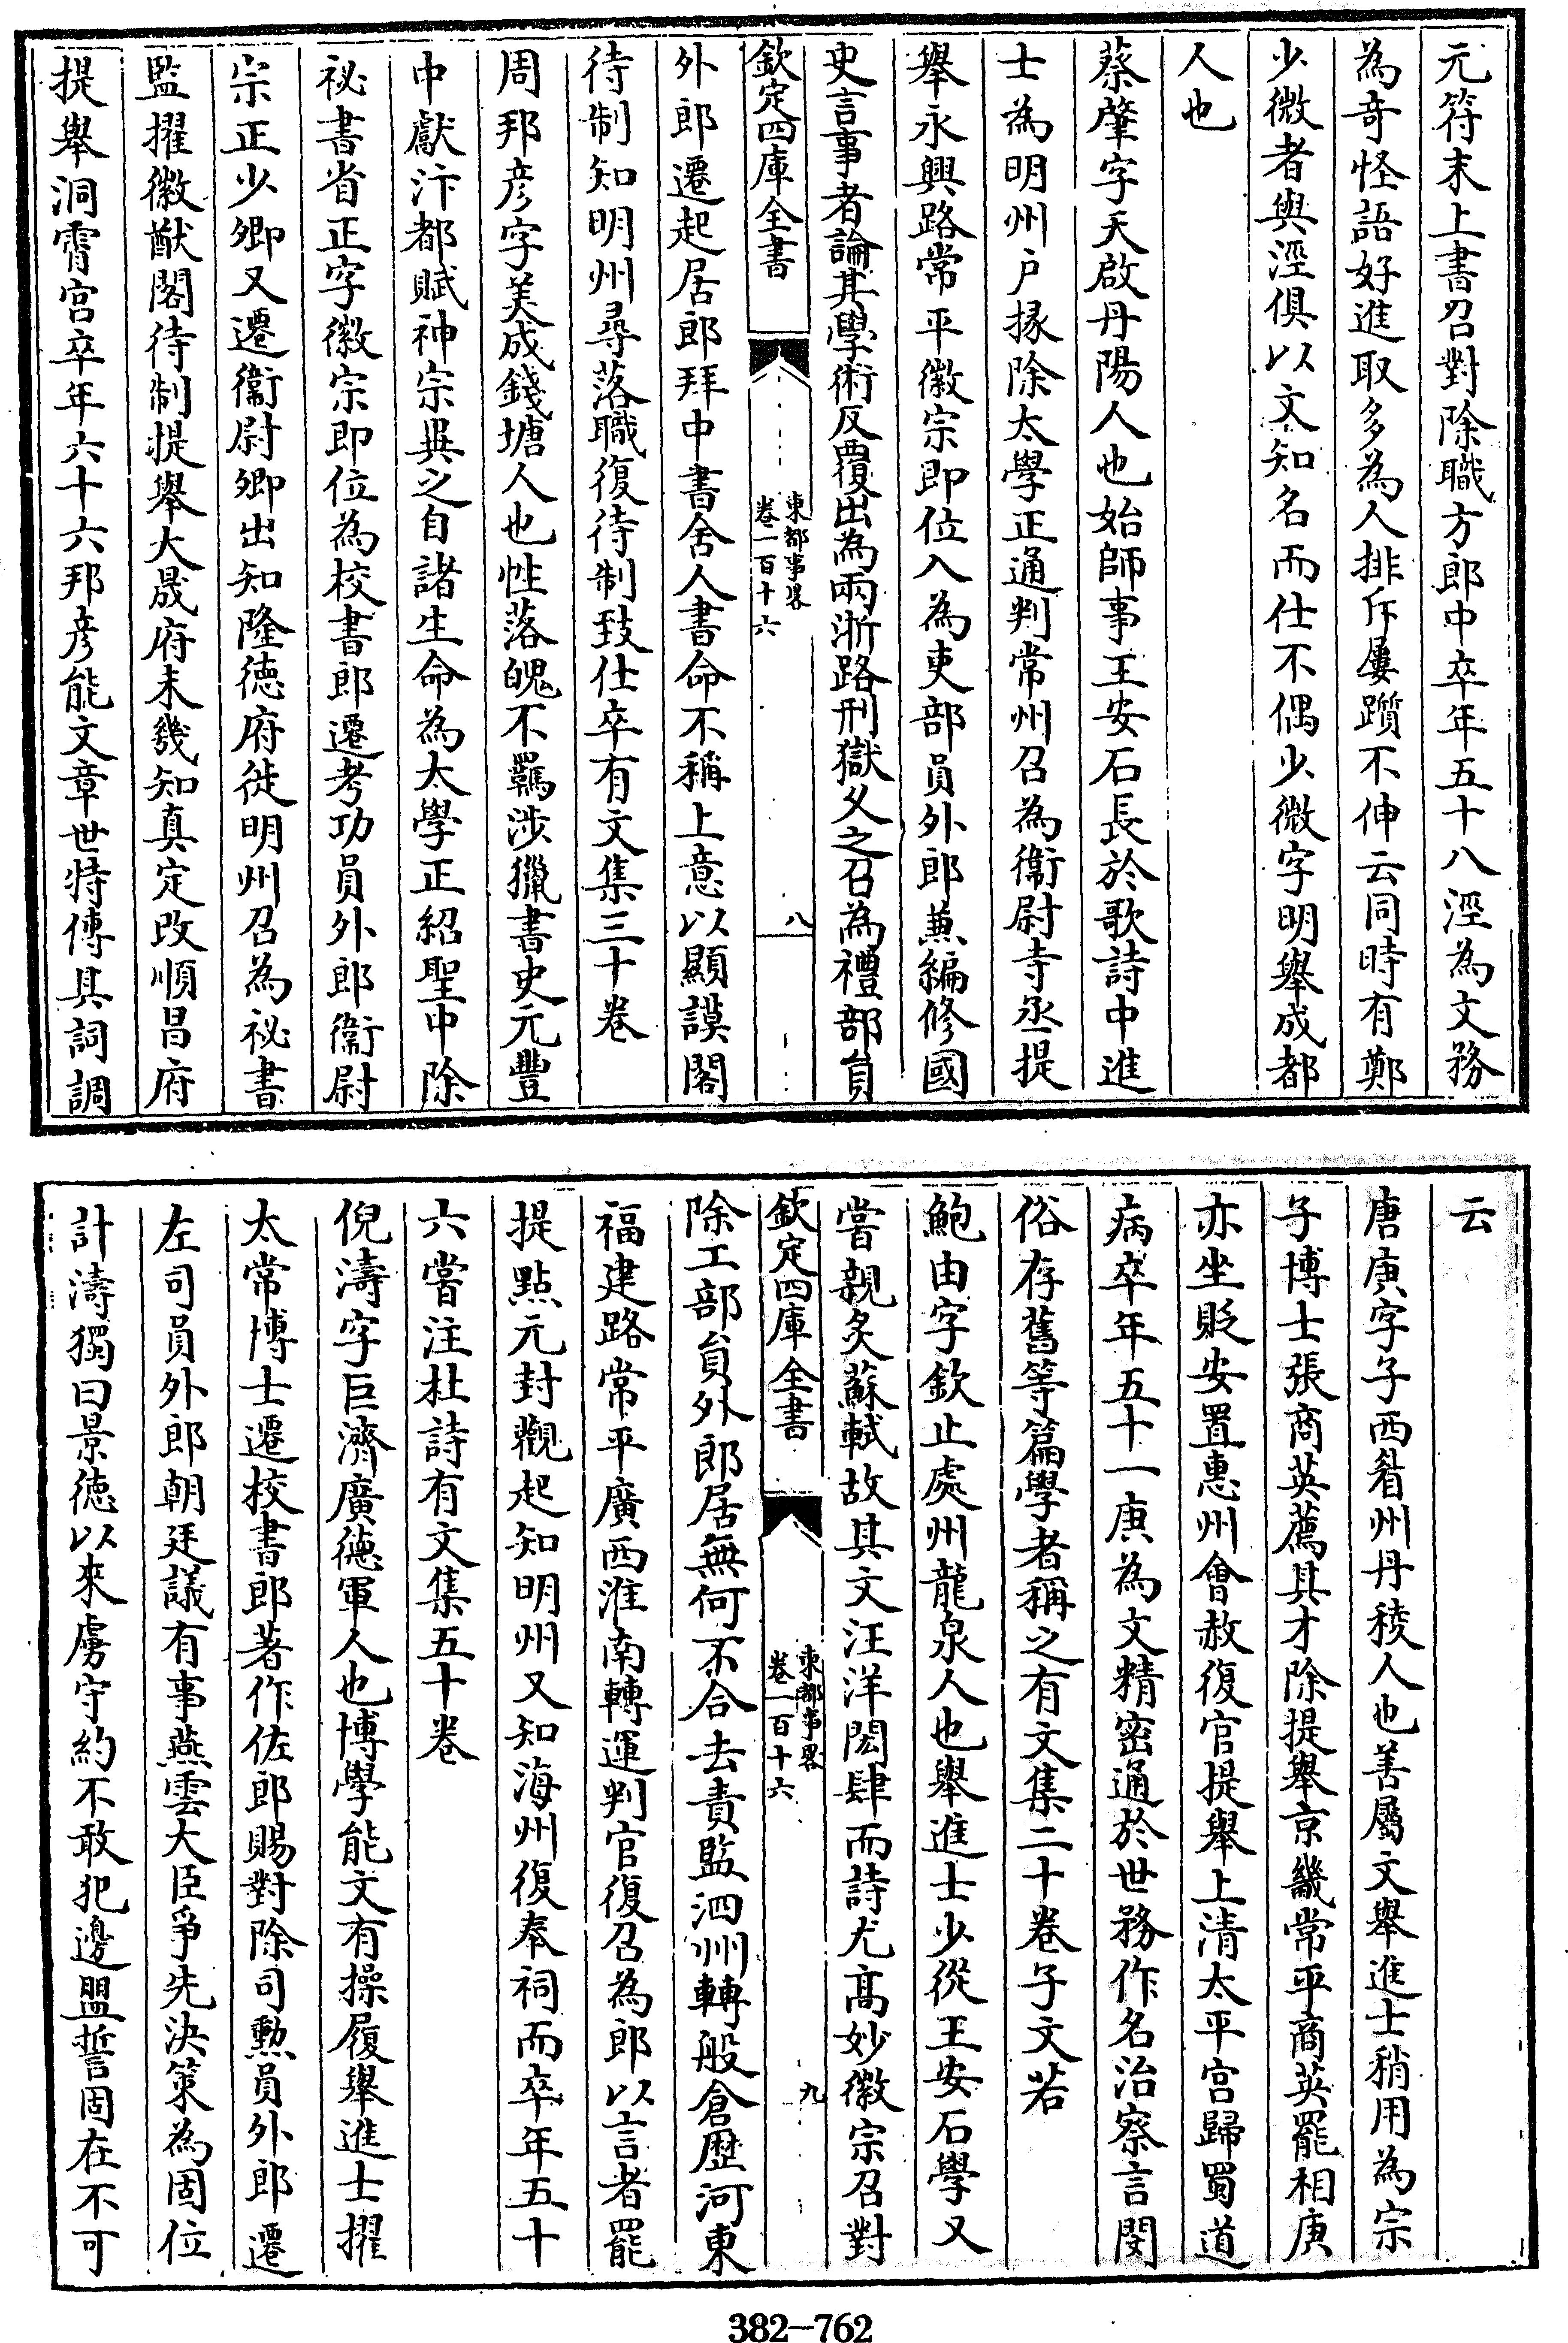 元符末上書召對除職方郎中卒年五十八涇為文務
為奇怪語好進取多為人排斥屢躓不伸云同時有鄭
少微者與涇俱以文知名而仕不偶少微字明舉成都
人也
蔡肇字天啟丹陽人也始師事王安石長於歌詩中進
士為明州户掾除太學正通判常州召為衞尉寺丞提
舉永興路常平徽宗即位入為吏部員外郎兼編修國
史言事者論其學術反覆出為兩浙路刑獄久之召為禮部員
欽定四庫全書
東都事畧
卷一百十六
八
外郎遷起居郎拜中書舍人書命不稱上意以顯謨閣
待制知明州尋落職復待制致仕卒有文集三十卷
周邦彦字美成錢塘人也性落魄不羈涉獵書史元豐
中獻汴都賦神宗異之自諸生命為太學正紹聖中除
祕書省正字徽宗即位為校書郎遷考功員外郎衞尉
宗正少卿又遷衞尉卿出知隆徳府徙明州召為祕書
監擢徽猷閣待制提舉大晟府未幾知真定改順昌府
提舉洞霄宫卒年六十六邦彦能文章世特傳其詞調
云
唐庚字子西眉州丹稜人也善屬文舉進士稍用為宗
子博士張商英薦其才除提舉京畿常平商英罷相庚
亦坐貶安置惠州會赦復官提舉上清太平宫歸蜀道
病卒年五十一庚為文精密通於世務作名治察言閔
俗存舊等篇學者稱之有文集二十卷子文若
鮑由字欽止處州龍泉人也舉進士少從王安石學又
嘗親炙蘇軾故其文汪洋閎肆而詩尤髙妙徽宗召對
欽定四庫全書
東都事畧
卷一百十六
九
除工部員外郎居無何不合去責監泗州轉般倉歴河東
福建路常平廣西淮南轉運判官復召為郎以言者罷
提點元封觀起知明州又知海州復奉祠而卒年五十
六嘗注杜詩有文集五十卷
倪濤字巨濟廣徳軍人也博學能文有操履舉進士擢
太常博士遷校書郎著作佐郎賜對除司勲員外郎遷
左司員外郎朝廷議有事燕雲大臣爭先決策為固位
計濤獨曰景徳以來虜守約不敢犯邊盟誓固在不可
382-762